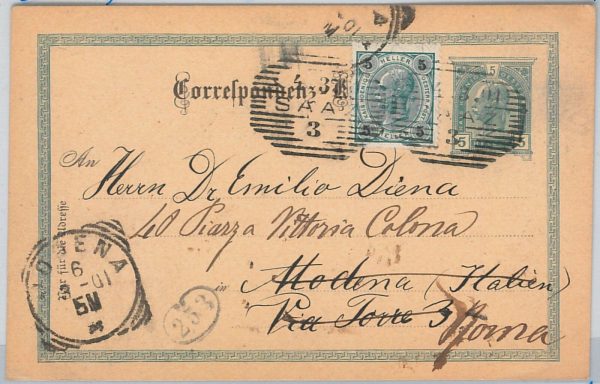 Correspondenz-K
5 HELLER 5
5 5
5
5 5
4 3
SAAZ
3
An
Herrn Dr Emilio Diena
40 Piazza Vittoria Colona
Nur für die Adresse
in Modena (Italien)
Via Torre 34
Roma
MODENA
6
3-01
5M
253